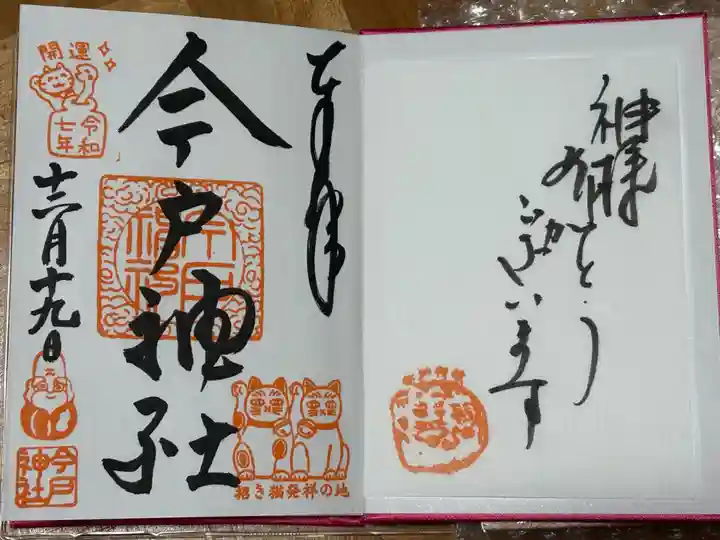 神様
有がとう
ございます
奉拝
今戸神社
開運
令和
七年
十二月十九日
今戸
神社
招き猫発祥の地